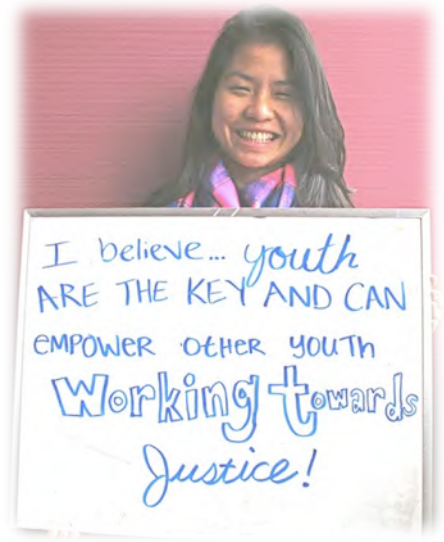 I believe... youth
ARE THE KEY AND CAN
EMPOWER OTHER YOUTH
Working towards
Justice!